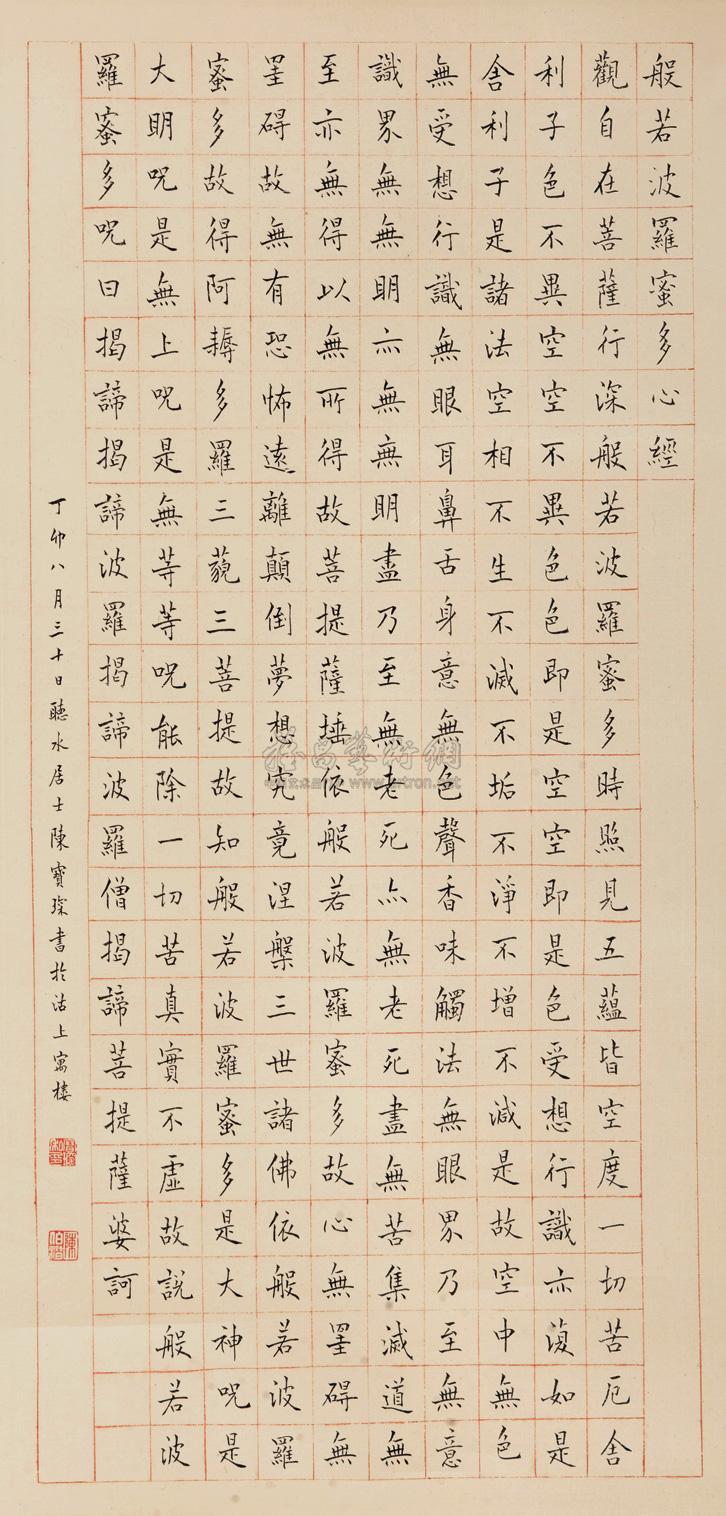 般若波羅蜜多心經
觀自在菩薩行深般若波羅蜜多時照見五蘊皆空度一切苦厄舍
利子色不異空空不異色色即是空空即是色受想行識亦復如是
舍利子是諸法空相不生不滅不垢不淨不增不減是故空中無色
無受想行識無眼耳鼻舌身意無色聲香味觸法無眼界乃至無意
識界無無明亦無無明盡乃至無老死亦無老死盡無苦集滅道無
至亦無得以無所得故菩提薩埵依般若波羅蜜多故心無罣碍無
罣碍故無有恐怖遠離顛倒夢想究竟涅槃三世諸佛依般若波羅
蜜多故得阿耨多羅三藐三菩提故知般若波羅蜜多是大神咒是
大明咒是無上咒是無等等咒能除一切苦真實不虛故說般若波
羅蜜多咒曰揭諦揭諦波羅揭諦波羅僧揭諦菩提薩婆訶
丁卯八月三十日聽水居士陳寶琛書於沽上寓樓
雅昌藝術網
www.artron.net